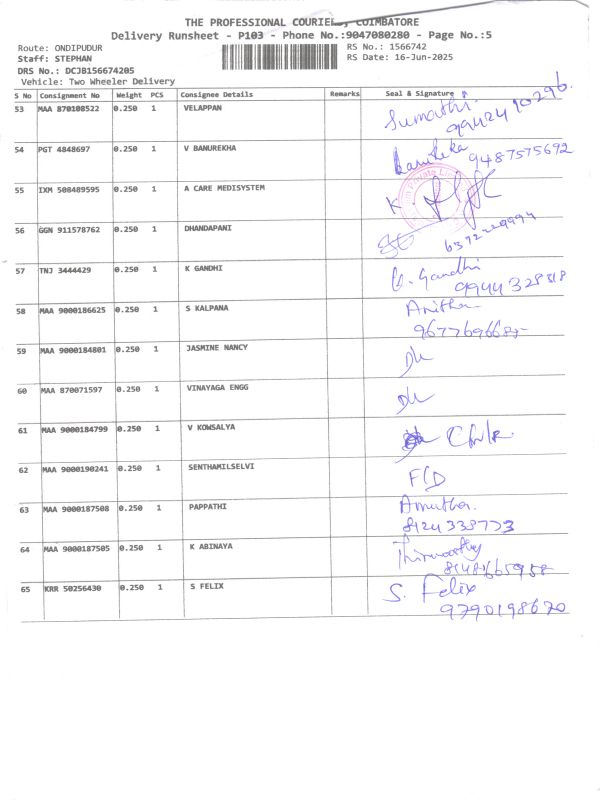 THE PROFESSIONAL COURIERS, COIMBATORE
Delivery Runsheet - P103 - Phone No.:9047080280 - Page No.:5
Route: ONDIPUDUR RS No.: 1566742
Staff: STEPHAN RS Date: 16-Jun-2025
DRS No.: DCJB156674205
Vehicle: Two Wheeler Delivery
S No Consignment No Weight PCS Consignee Details Remarks Seal & Signature
53 MAA 870108522 0.250 1 VELAPPAN Sumathi
9942490296
54 PGT 4848697 0.250 1 V BANUREKHA
9487575692
55 IXM 508489595 0.250 1 A CARE MEDISYSTEM
56 GGN 911578762 0.250 1 DHANDAPANI
57 TNJ 3444429 0.250 1 K GANDHI K. Gandhi
9944328818
58 MAA 9000186625 0.250 1 S KALPANA Anitha
59 MAA 9000184801 0.250 1 JASMINE NANCY
60 MAA 870071597 0.250 1 VINAYAGA ENGG
61 MAA 9000184799 0.250 1 V KOWSALYA
62 MAA 9000190241 0.250 1 SENTHAMILSELVI F/D
63 MAA 9000187508 0.250 1 PAPPATHI Amutha.
8124338773
64 MAA 9000187505 0.250 1 K ABINAYA
65 KRR 50256430 0.250 1 S FELIX S. Felix
9790198670